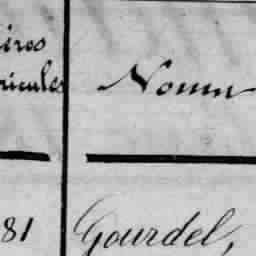 iros
ricules Nomm
81 Gourdel,